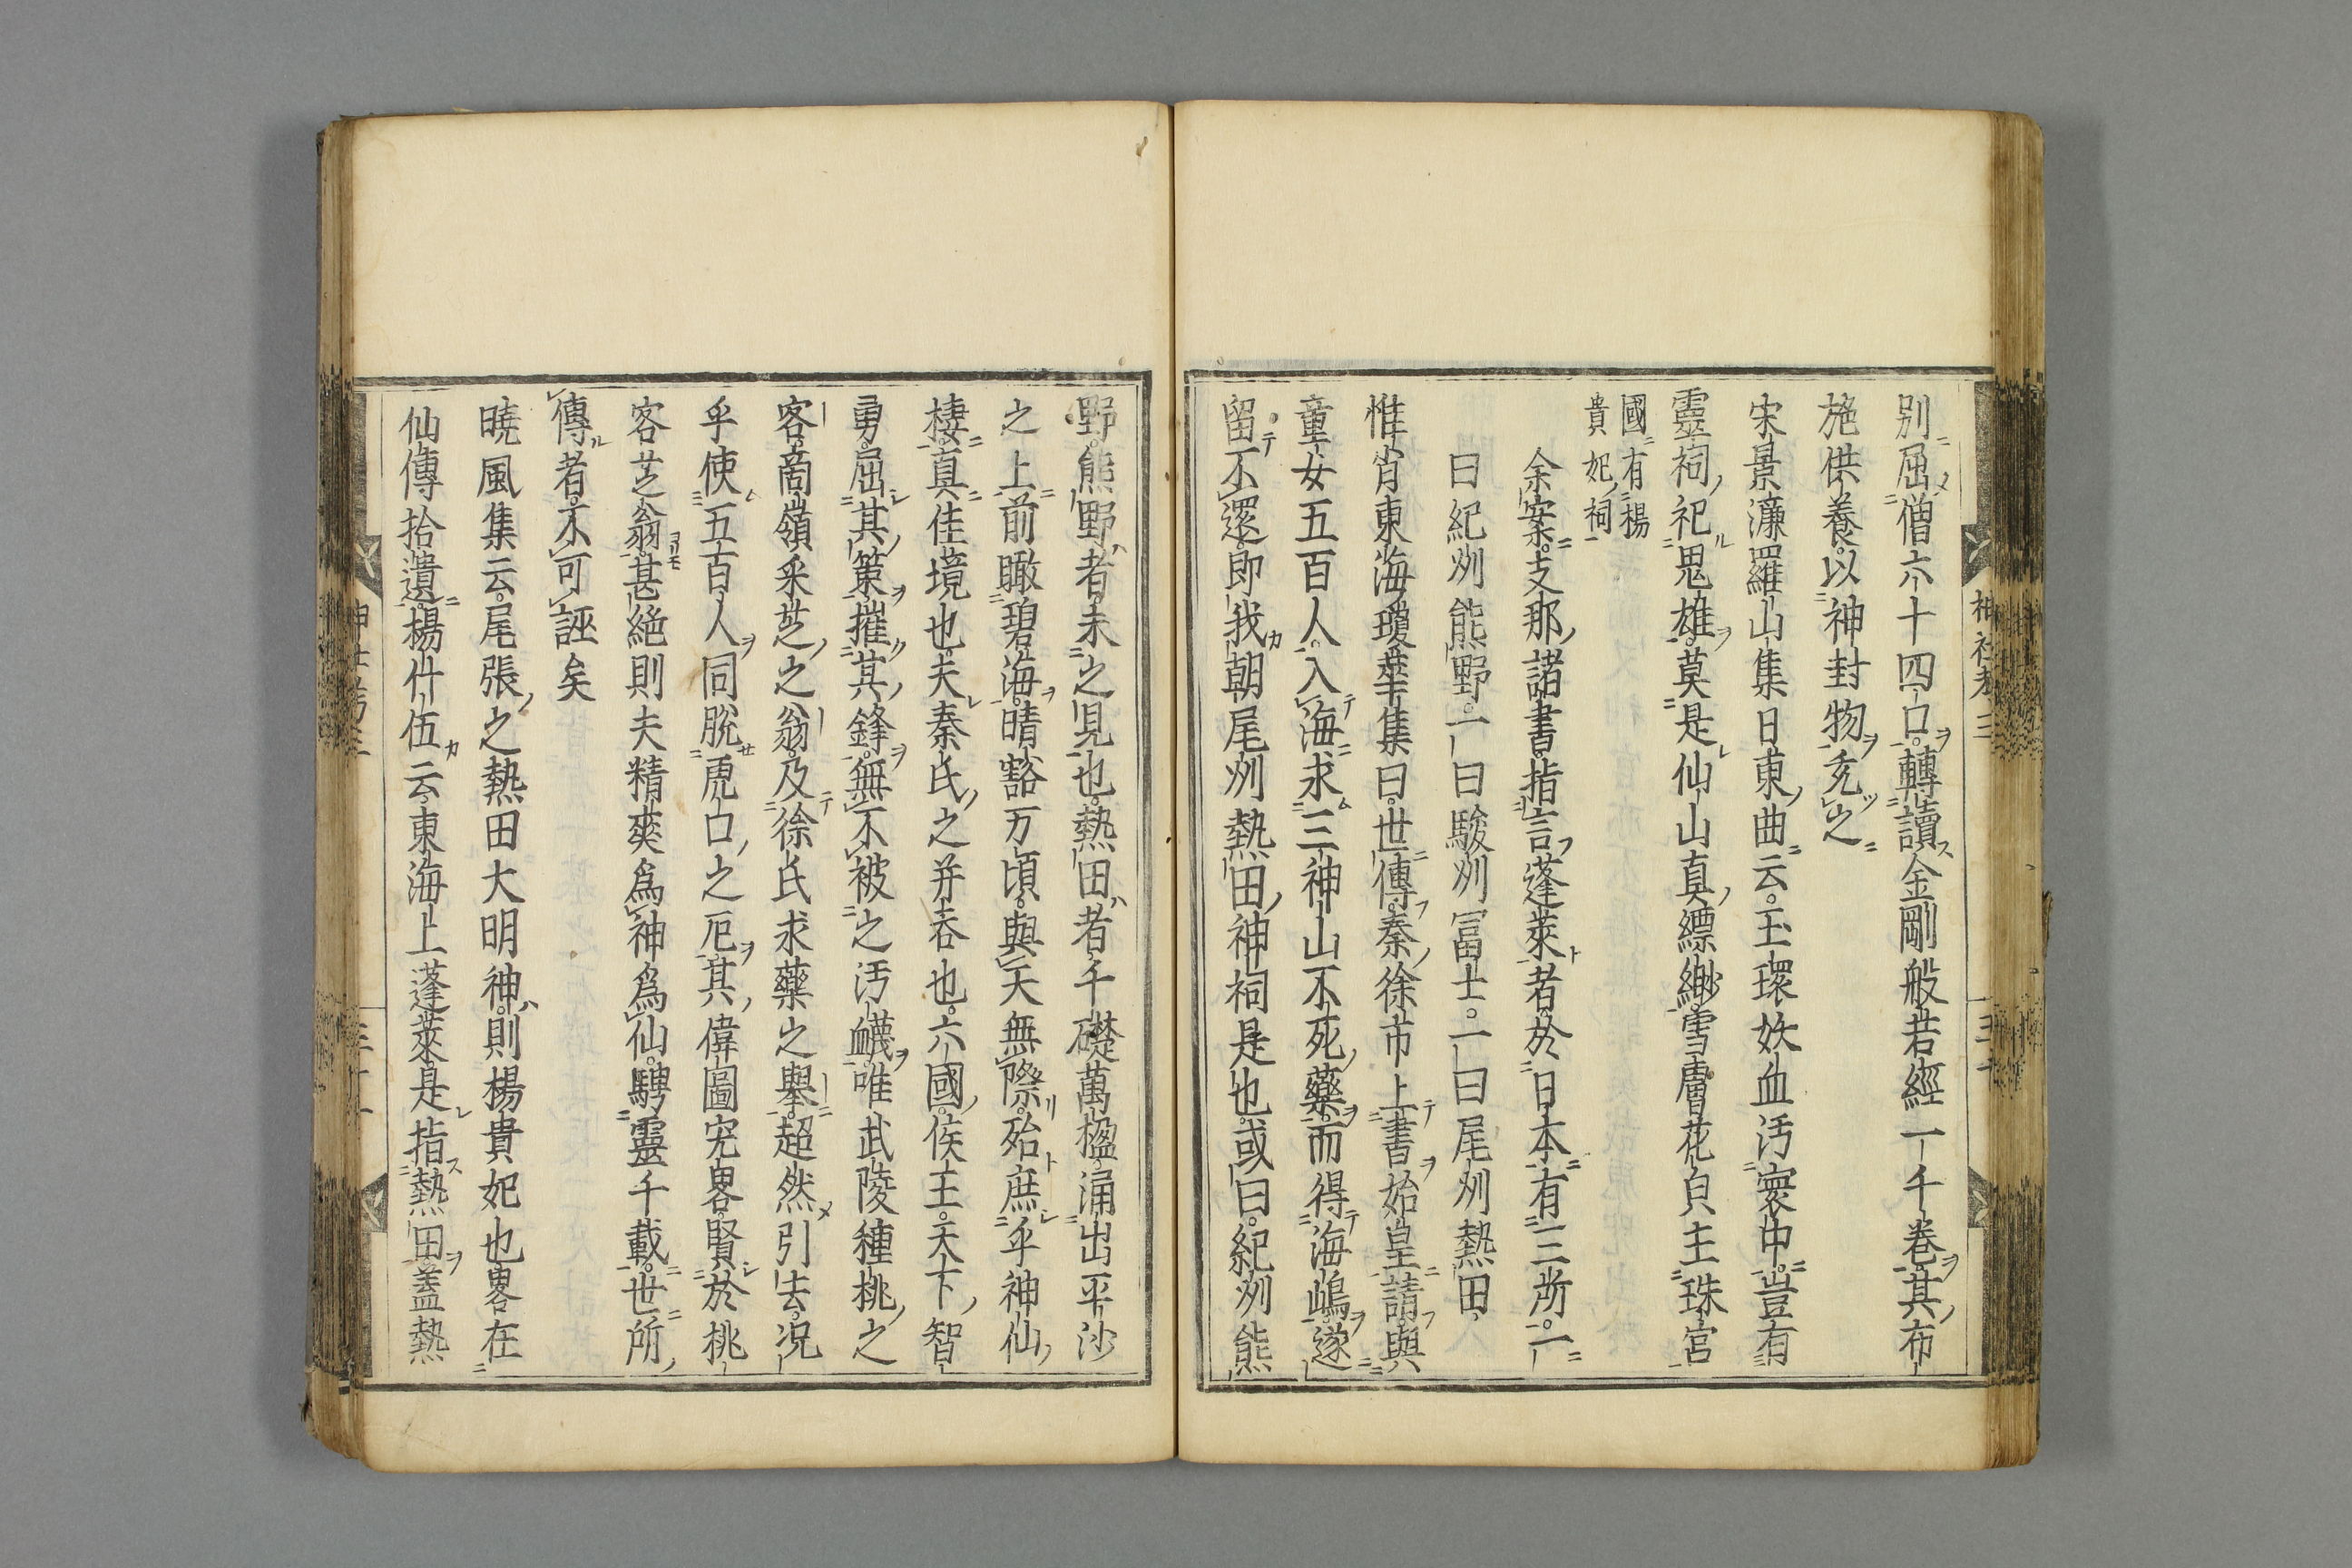 別屈僧六十四口轉讀金剛般若經一千卷其布
施供養以神封物充之
宋景濂羅山集日東曲云玉環妖血汚寰中豈有
靈祠祀鬼雄莫是仙山真縹緲雪膚花貌主珠宮
國有楊
貴妃祠
余案支那諸書指言蓬萊者於日本有三所一
曰紀州熊野一曰駿州冨士一曰尾州熱田
惟肖東海璚華集曰世傳秦徐市上書始皇請與
童女五百人入海求三神山不死藥而得海嶋遂
留不還即我朝尾州熱田神祠是也或曰紀州熊
野熊野者未之見也熱田者千礎萬楹涌出平沙
之上前瞰碧海晴豁万頃與天無際殆庶乎神仙
棲真佳境也夫秦氏之并吞也六國侯王天下智
勇屈其策摧其鋒無不被之汚衊唯武陵種桃之
客商嶺采芝之翁及徐氏求藥之舉超然引去況
乎使五百人同脫虎口之厄其偉圖宏畧賢於桃
客芝翁ヨリモ甚絶則夫精爽為神為仙騁靈千載世所
傳者不可誣矣
曉風集云尾張之熱田大明神則楊貴妃也畧在
仙傳拾遺楊什伍云東海上蓬萊是指熱田蓋熱
神社考三